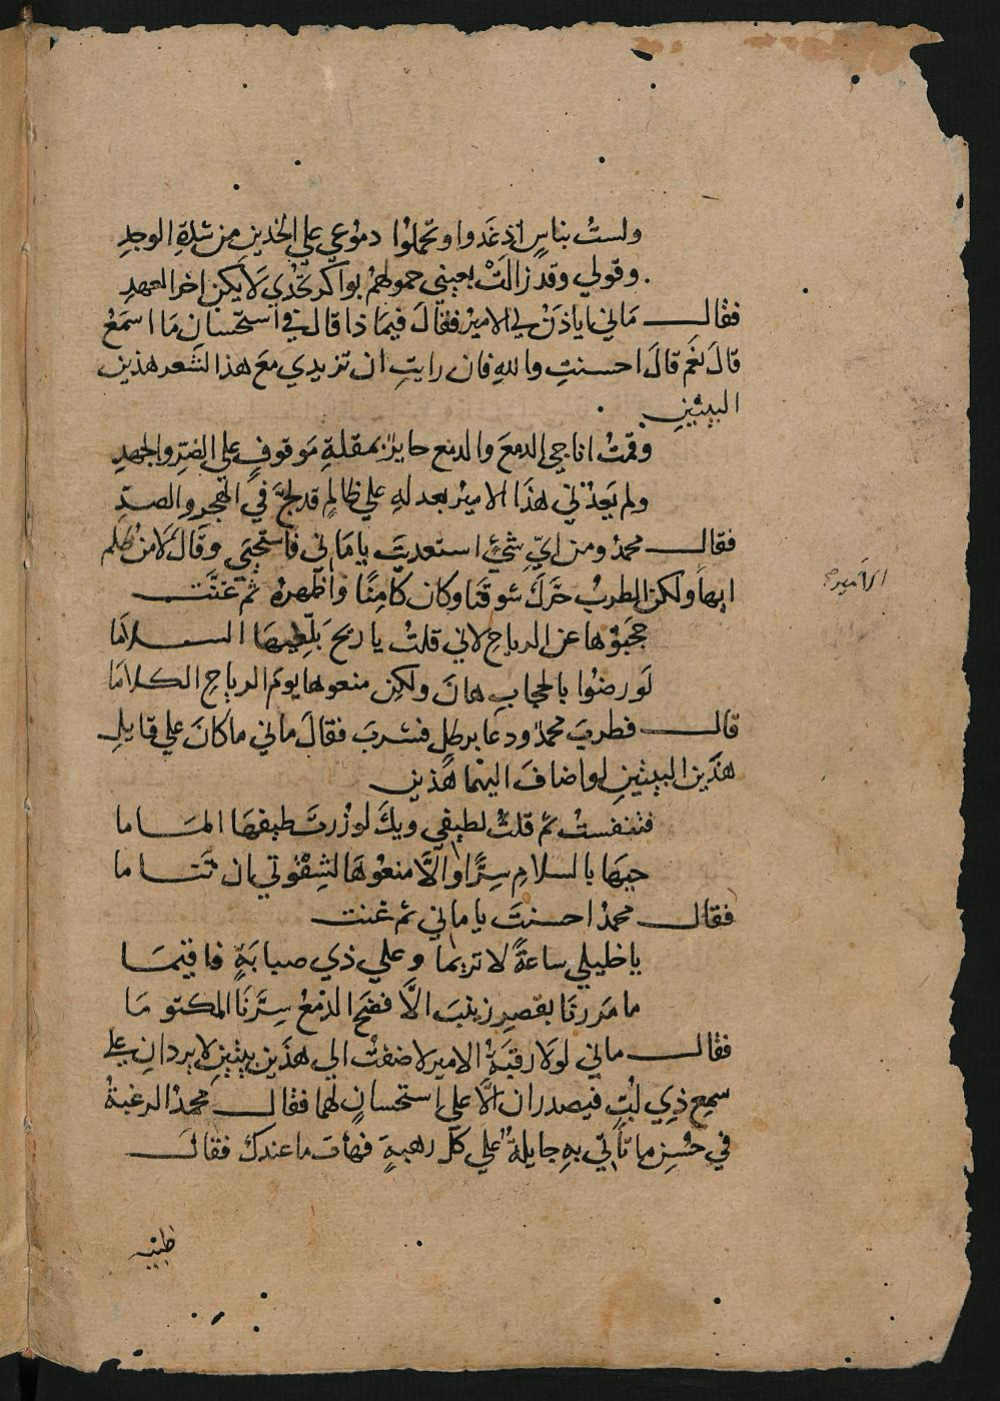 ولستُ بناسٍ اذ غَدوا وتحملوُا دموُعي علي الخدينِ مِن شدةِ الوجدِ
وقولي وقد زالتْ بعيني حمولهمُ بواكر تُحْدَي لَا يكن اخرَ العهدِ
فقالـــ مَاني اياذنُ لي الامير فقالَ فيمَا ذا قال في استحسان مَا اسمَعُ
قالَ نعَم قالَ احسنتِ والله فان رايتِ ان تزيدي معَ هذا الشَعر هذين
البيتينِ
وقمتُ اناجي الدمعَ والدمع حايرٌ بمقلةِ مَوقوفٍ علي الضرِ والجهدِ
ولم يُعدْني هذَا الاميرُ بعدلهِ علي ظالمٍ قد لجَّ في الهجر والصدِّ
فقالـــ محمدٌ ومن ايِّ شيءٍ استعديتَ يا مَاني فاستحيَي وقَالَ لَا من ظلم
ايهاَ ولكن الطربُ حَرَّكَ شوقًا وكان كامِنًا واظهرهُ ثمَّ غنَّتـــ
الأمير صح
حجبوُها عن الرياحِ لاني قلتُ يا ريحَ بَلّغيهَا الســلامَا
لَو رضوُا بالحجابِ هانَ ولكن منعوها يومَ الرياحِ الكلامَا
قالـــ فطربَ محمدٌ ودعا برطلٍ فشربَ فقالَ ماني ما كانَ علي قايلِ
هذَين البيتينِ لو اضافَ اليهما هذين
فتنفستُ ثم قلتُ لطيفي ويكَ لو زُرتَ طيفهَا المَـاما
حيهَا بالسلامِ سِرًّا والَّا منعوُهَا لشِقْوَتي ان تَنَــاما
فقالـــ محمدٌ احسنتَ يا ماني ثم غنت
يا خليلي ساعةً لا تريما وعلي ذي صبابَةٍ فاقيمَــا
ما مَررنَا بقصرِ زينبَ الَّا فضحَ الدمعُ سِرَّنَا المكتومَا
فقالـــ ماني لولَا رقبَةُ الامير لاضفتُ الي هذَين بيتينِ لا يردان علي
سمعِ ذِي لُبٍ فيصدران الَّا علي استحسانٍ لهما فقالـــ محمدٌ الرغبةُ
في حسُنِ ما تأتي بهِ جايلةٌ علي كل رهبةٍ فهات ما عندك فقالَـــ